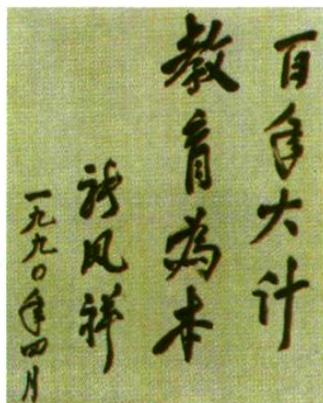 百年大计
教育為本
凤祥
一九九〇年四月